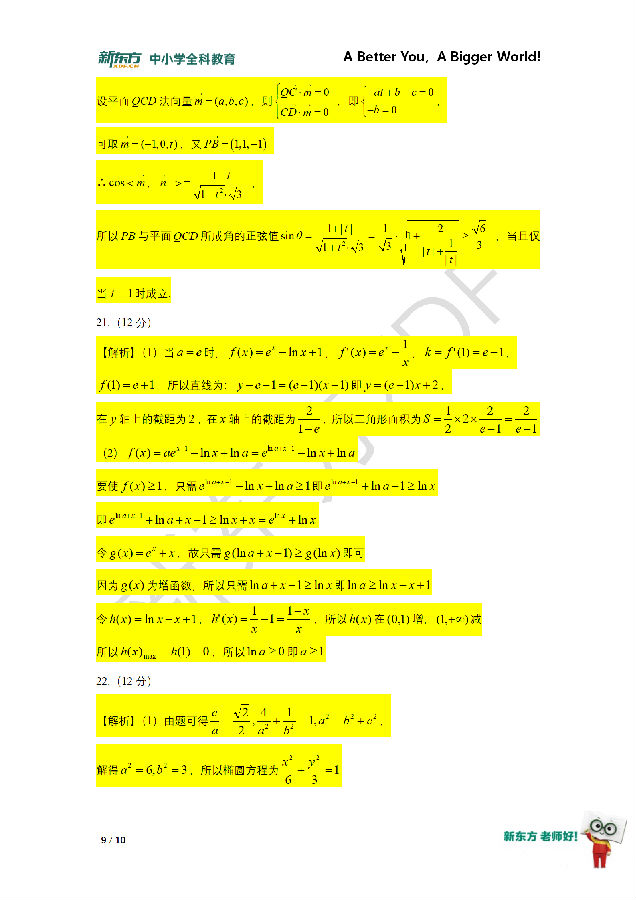 新东方 中小学全科教育 A Better You, A Bigger World!
设平面 QCD 法向量 m=(a,b,c)，则 { QC·m=0, CD·m=0 ，即 { at+b c=0, -b=0 ，
可取 m=(-1,0,t)，又 PB=(1,1,-1)
∴ cos<m，n>= 1 t / √1 t²·√3 ，
所以 PB 与平面 QCD 所成角的正弦值 sin θ = 1+|t| / √1+t²·√3 = 1/√3 · √1+ 2/(|t|+1/|t|) ≥ √6/3 ，当且仅
当 t 1 时成立.
21.（12 分）
【解析】（1）当 a=e 时，f(x)=eˣ-ln x+1，f'(x)=eˣ-1/x，k=f'(1)=e-1，
f(1)=e+1 所以直线为：y-e-1=(e-1)(x-1) 即 y=(e-1)x+2，
在 y 轴上的截距为 2，在 x 轴上的截距为 2/(1-e)，所以三角形面积为 S=1/2×2×2/(e-1)=2/(e-1)
（2）f(x)=ae^(x-1)-ln x+ln a=e^(ln a+x-1)-ln x+ln a
要使 f(x)≥1，只需 e^(ln a+x-1)-ln x+ln a≥1 即 e^(ln a+x-1)+ln a-1≥ln x
即 e^(ln a+x-1)+ln a+x-1≥ln x+x=e^(ln x)+ln x
令 g(x)=eˣ+x，故只需 g(ln a+x-1)≥g(ln x) 即可
因为 g(x) 为增函数，所以只需 ln a+x-1≥ln x 即 ln a≥ln x-x+1
令 h(x)=ln x-x+1，h'(x)=1/x-1=(1-x)/x，所以 h(x) 在 (0,1) 增，(1,+∞) 减
所以 h(x)max h(1) 0，所以 ln a≥0 即 a≥1
22.（12 分）
【解析】（1）由题可得 c/a √2/2, 4/a²+1/b² 1, a² b²+c²，
解得 a²=6,b²=3，所以椭圆方程为 x²/6+y²/3=1
9 / 10
新东方 老师好!